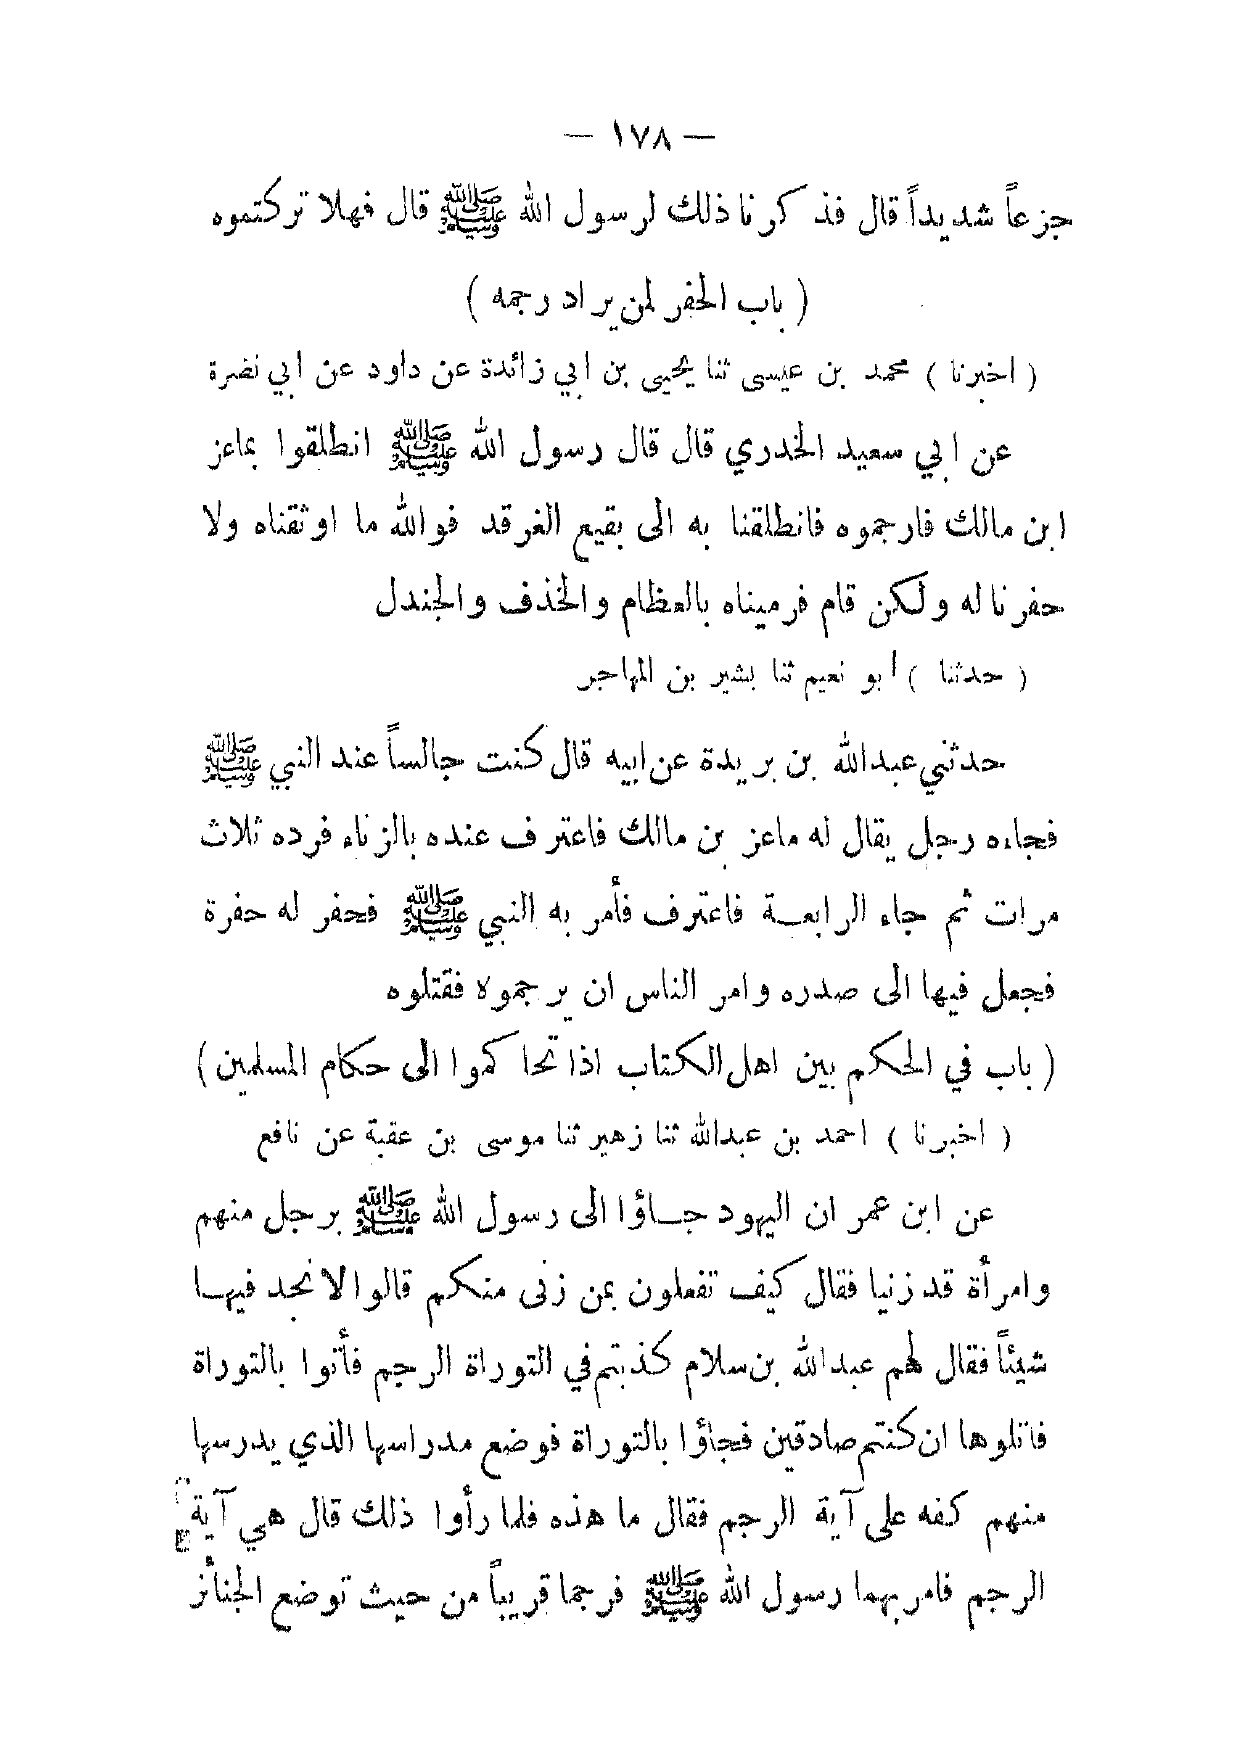 — ١٧٨ —
جزعاً شديداً قال فذكرنا ذلك لرسول الله ﷺ قال فهلا تركتموه
( باب الحفر لمن يراد رجمه )
( اخبرنا ) محمد بن عيسى ثنا يحيى بن ابي زائدة عن داود عن ابي نضرة
عن ابي سعيد الخدري قال قال رسول الله ﷺ انطلقوا بماعز
ابن مالك فارجموه فانطلقنا به الى بقيع الغرقد فوالله ما اوثقناه ولا
حفرنا له ولكن قام فرميناه بالعظام والخذف والجندل
( حدثنا ) أبو نعيم ثنا بشير بن المهاجر
حدثني عبدالله بن بريدة عن ابيه قال كنت جالساً عند النبي ﷺ
فجاءه رجل يقال له ماعز بن مالك فاعترف عنده بالزناء فرده ثلاث
مرات ثم جاء الرابعـة فاعترف فأمر به النبي ﷺ فحفر له حفرة
فجعل فيها الى صدره وامر الناس ان يرجموه فقتلوه
( باب في الحكم بين اهل الكتاب اذا تحاكموا الى حكام المسلمين )
( اخبرنا ) احمد بن عبدالله ثنا زهير ثنا موسى بن عقبة عن نافع
عن ابن عمر ان اليهود جـاؤا الى رسول الله ﷺ برجل منهم
وامرأة قد زنيا فقال كيف تفعلون بمن زنى منكم قالوا لا نجد فيهـا
شيئاً فقال لهم عبدالله بن سلام كذبتم في التوراة الرجم فأتوا بالتوراة
فاتلوها ان كنتم صادقين فجاؤا بالتوراة فوضع مدراسها الذي يدرسها
منهم كفه على آية الرجم فقال ما هذه فلما رأوا ذلك قال هي آية
الرجم فامر بهما رسول الله ﷺ فرجما قريباً من حيث توضع الجنأئز